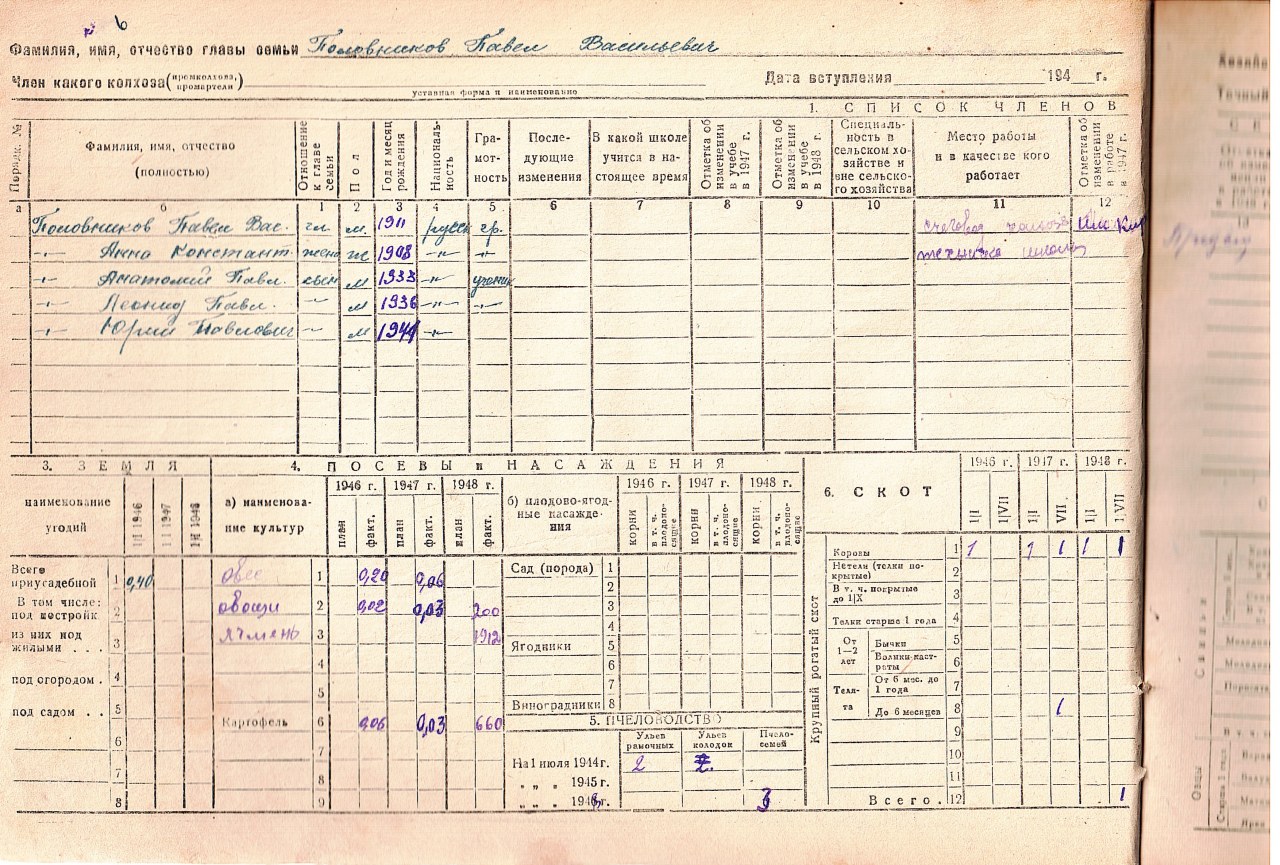 6
Фамилия, имя, отчество главы семьи Половников Павел Васильевич
Член какого колхоза (промколхоза, промартели) Дата вступления 194 г.
уставная форма и наименование
1. СПИСОК ЧЛЕНОВ
Порядк. № Фамилия, имя, отчество (полностью) Отношение к главе семьи Пол Год и месяц рождения Националь-ность Гра-мот-ность После-дующие изменения В какой школе учится в на-стоящее время Отметка об изменении в учебе в 1947 г. Отметка об изменении в учебе в 1948 г. Специаль-ность в сельском хо-зяйстве и вне сельско-го хозяйства Место работы и в качестве кого работает Отметка об изменении в работе в 1947 г.
а б 1 2 3 4 5 6 7 8 9 10 11 12
Половников Павел Вас. гл. м. 1911 русск гр. счетовод колхоза
-"- Анна Констант. жена ж 1908 -"- техничка школы
-"- Анатолий Павл. сын м 1933 -"- ученик
-"- Леонид Павл. -"- м 1936 -"- -"-
-"- Юрий Павлович -"- м 1944 -"-
3. ЗЕМЛЯ
наименование угодий 1|I 1946 1|I 1947 1|I 1948
Всего приусадебной 1 0,40
В том числе: под постройк. 2
из них под жилыми . . . 3
под огородом . 4
под садом . . 5
6
7
8
4. ПОСЕВЫ и НАСАЖДЕНИЯ
а) наименова-ние культур 1946 г. 1947 г. 1948 г.
план факт. план факт. план факт.
овес 1 0,20 0,06
овощи 2 0,02 0,03 200
ячмень 3 1912
4
5
Картофель 6 0,06 0,03 660
7
8
9
б) плодово-ягод-ные насажде-ния 1946 г. 1947 г. 1948 г.
корни в т. ч. плодоно-сящие корни в т. ч. плодоно-сящие корни в т. ч. плодоно-сящие
Сад (порода) 1
2
3
4
Ягодники 5
6
7
Виноградники 8
5. ПЧЕЛОВОДСТВО
Ульев рамочных Ульев колодок Пчело-семей
На 1 июля 1944 г. 2 2
" " " 1945 г.
" " " 1946 г. 3
6. СКОТ
1946 г. 1947 г. 1948 г.
1|I 1|VII 1|I VII 1|I 1|VII
Крупный рогатый скот
Коровы 1 1 1 1 1 1
Нетели (телки по-крытые) 2
В т. ч. покрытые до 1|X 3
Телки старше 1 года 4
От 1—2 лет Бычки 5
Волики-каст-раты 6
Теля-та От 6 мес. до 1 года 7
До 6 месяцев 8 1
9
10
11
Всего . 12 1
Точный
Овцы